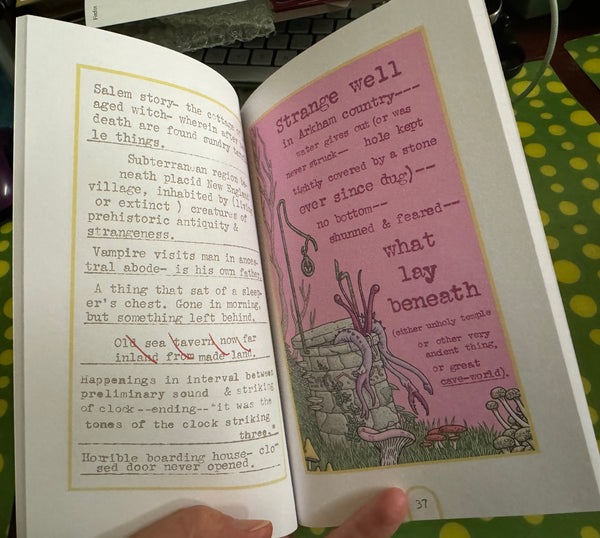 Salem story- the cottage of
aged witch- wherein after
death are found sundry
le things.
Subterranean region
neath placid New England
village, inhabited by (living
or extinct ) creatures of
prehistoric antiquity &
strangeness.
Vampire visits man in ances-
tral abode- is his own father.
A thing that sat of a sleep-
er's chest. Gone in morning,
but something left behind.
Old sea tavern now far
inland from made land.
Happenings in interval between
preliminary sound & striking
of clock--ending--"it was the
tones of the clock striking
three."
Horrible boarding house- clo-
sed door never opened.
Strange well
in Arkham country---
water gives out (or was
never struck-- hole kept
tightly covered by a stone
ever since dug)---
no bottom--
shunned & feared--
what
lay
beneath
(either unholy temple
or other very
ancient thing,
or great
cave-world).
37